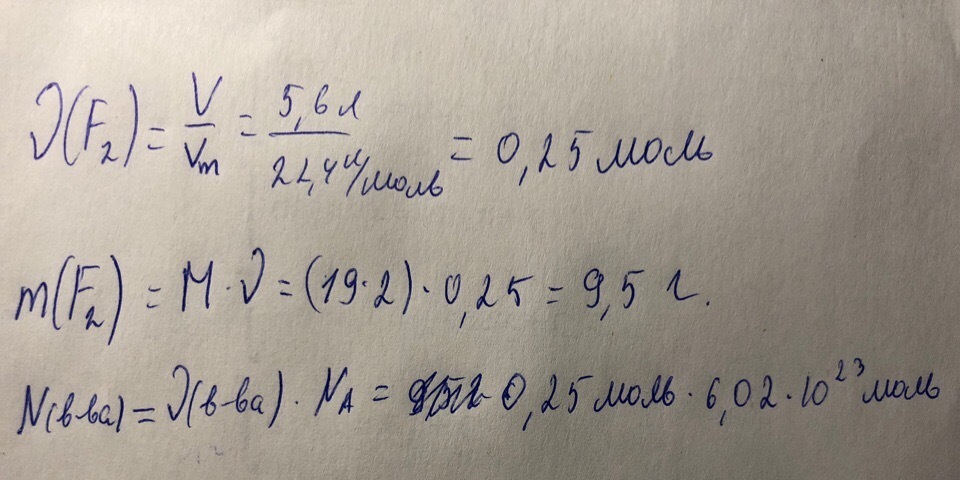 ν(F₂) = V/Vm = 5,6 л / 22,4 л/моль = 0,25 моль
m(F₂) = M · ν = (19·2) · 0,25 = 9,5 г.
N(в-ва) = ν(в-ва) · NA = 0,25 моль · 6,02 · 10²³ моль